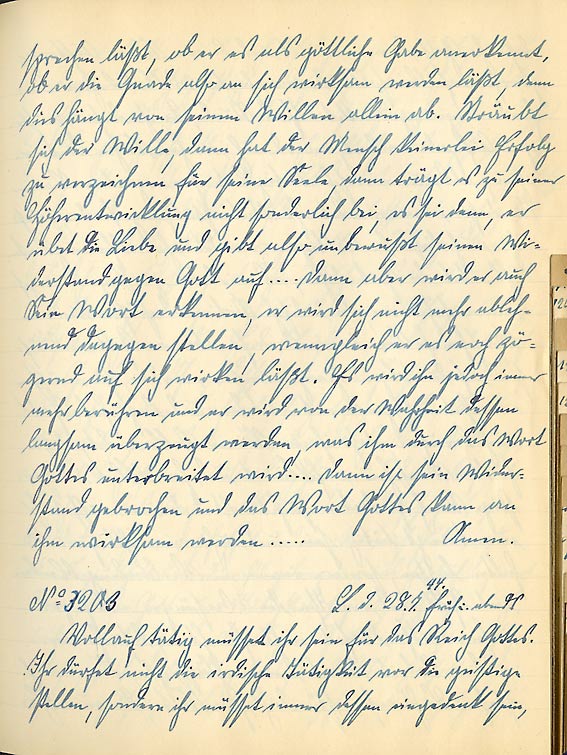 sprechen läßt, ob er es als göttliche Gabe anerkennt,
ob er die Gnade also an sich wirksam werden läßt, denn
dies hängt von seinem Willen allein ab. Sträubt
sich der Wille, dann hat der Mensch keinerlei Erfolg
zu verzeichnen für seine Seele, dann trägt es zu seiner
Höherentwicklung nicht sonderlich bei, es sei denn, er
übet die Liebe und gibt also unbewußt seinen Wi-
derstand gegen Gott auf.... Dann aber wird er auch
Sein Wort erkennen, er wird sich nicht mehr ableh-
nend dagegen stellen, wenngleich er es noch zö-
gernd auf sich wirken läßt. Es wird ihn jedoch immer
mehr berühren und er wird von der Wahrheit dessen
langsam überzeugt werden, was ihm durch das Wort
Gottes unterbreitet wird.... Dann ist sein Wider-
stand gebrochen und das Wort Gottes kann an
ihm wirksam werden..... Amen.
No 3203 28.7. 44. früh u. abends
Vollauf tätig müsset ihr sein für das Reich Gottes.
Ihr dürfet nicht die irdische Tätigkeit vor die geistige
stellen, sondern ihr müsset immer dessen eingedenk sein,